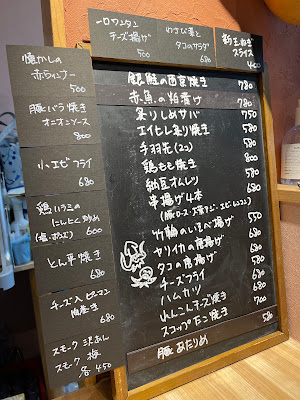 一口ワンタン
チーズ揚げ
500
わさび菜と
タコのサラダ
680
新玉ねぎ
スライス
400
懐かしの
赤ウィンナー
500
豚バラ焼き
オニオンソース
800
小エビフライ
680
鶏ハラミの
にんにく炒め
600
とん平焼き
680
チーズ入ピーマン
肉巻き
680
スモーク沢あん
スモーク梅
各450
銀鮭の西京焼き 780
赤魚の粕漬け 780
炙りしめサバ 750
エイヒレ炙り焼き 580
手羽先(2コ) 580
鶏もも焼き 800
納豆オムレツ 580
串揚げ4本
竹輪のいそべ揚げ 550
ヤリイカの唐揚げ 680
タコの唐揚げ 680
チーズフライ 680
ハムカツ 680
れんこんチーズ焼き 700
スコップたこ焼き 580
豚おたりめ